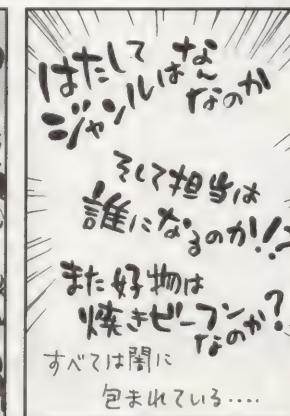 はたして
ジャンルはなんなのか
そして担当は
誰になるのか!!?
また好物は
焼きビーフンなのか?
すべては闇に
包まれている‥‥